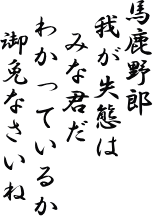 馬鹿野郎
我が失態は
みな君だ
わかっているか
御免なさいね